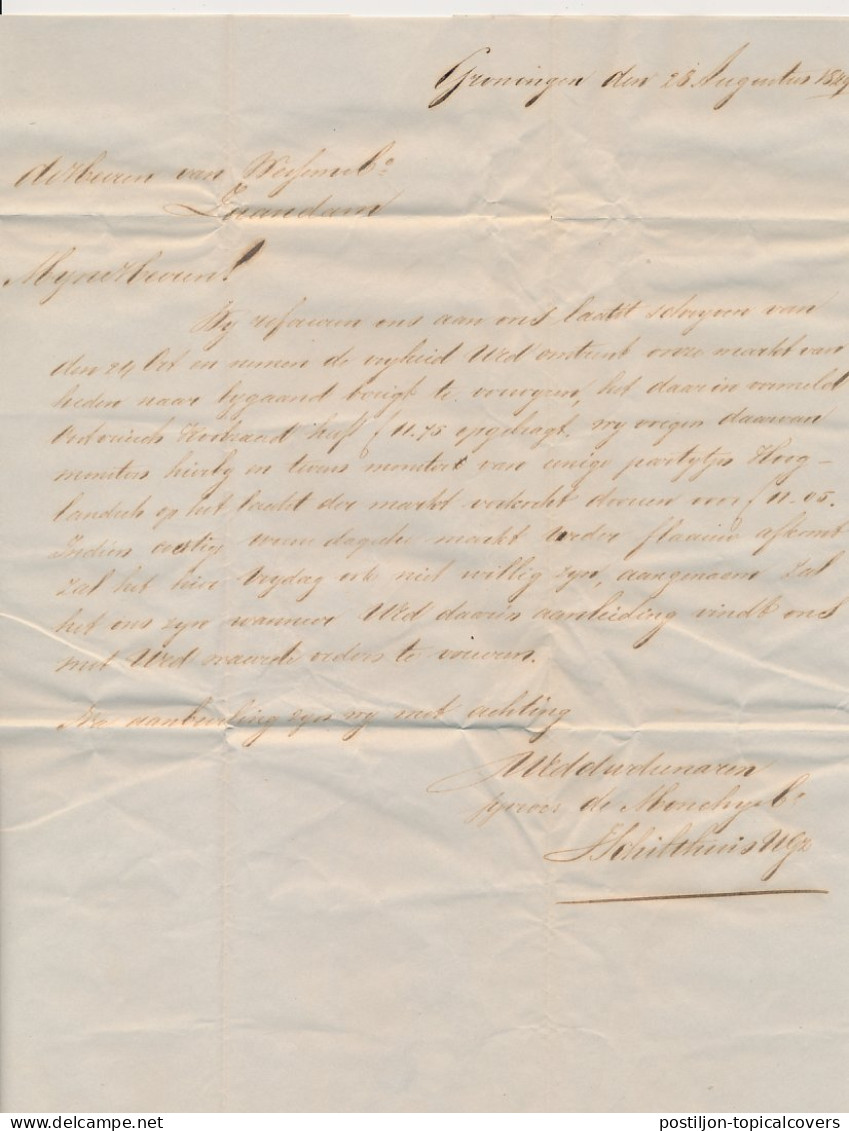 Groningen den 28 Augustus 1849
de Heeren van Co
Zaandam
Myne Heeren!
Wy refereren ons aan ons laatst schryven van
den 24 en nemen de vryheid UEd omtrent onze markt van
heden naar bygaand berigt te het daarin vermeld
Koolzaad heeft f 11.75 opgebragt, wy voegen daarvan
monsters hierby en tevens monsters van eenige partytjes Hoog-
landsch op het laatst der markt verkocht voor f 11.05.
Indien uwe dagsche markt weder flaauw afkomt
zal het hier Vrydag ook niet willig zyn, aangenaam zal
het ons zyn wanneer UEd daarin aanleiding vindt ons
met UEd waarde orders te vereeren.
Na aanbeveling zyn wy met achting
UEd dw dienaren
voor de Monchy & Co
Schilthuis UGz
delcampe.net
postiljon-topicalcovers